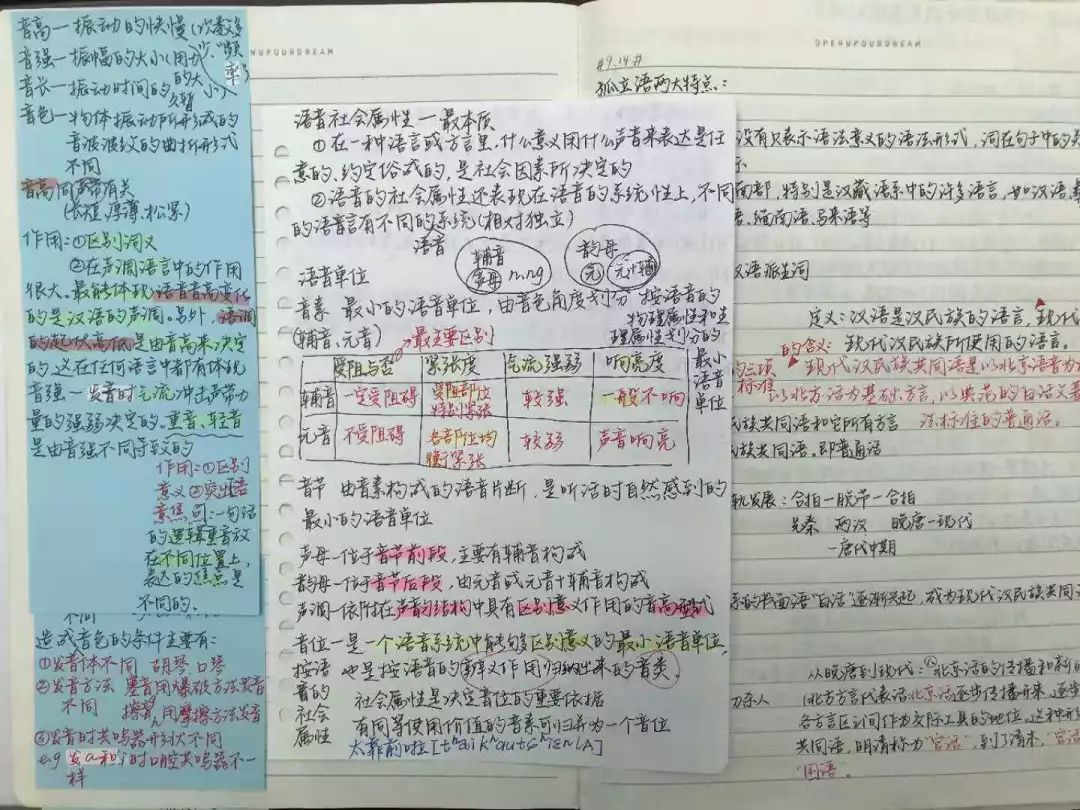 音高—振动的快慢(次数多少"频率")
音强—振幅的大小(用力的大小)
音长—振动时间的久暂
音色—物体振动所形成的
音波波纹的曲折形式
不同
音高同声带有关
(长短,厚薄,松紧)
作用:①区别词义
②在声调语言中的作用
很大。最能体现语音音高变化
的是汉语的声调。另外,语调
的起伏高低是由音高来决定
的,这在任何语言中都有体现
音强—发音时气流冲击声带力
量的强弱决定的。重音、轻音
是由音强不同导致的
作用:①区别
意义②突出语
意焦点:一句话
的逻辑重音放
在不同位置上,
表达的焦点是
不同的。
不同
造成音色的条件主要有:
①发音体不同 胡琴 口琴
②发音方法 塞音用爆破方法发音
不同 擦音用摩擦方法发音
③发音时共鸣器形状不同
eg 发a和i时口腔共鸣器不一
样
语音社会属性—最本质
①在一种语言或方言里,什么意义用什么声音来表达是任
意的,约定俗成的,是社会因素所决定的
②语音的社会属性还表现在语音的系统性上,不同
的语言有不同的系统(相对独立)
语音
辅音 声母 n,ng
韵母 元 元+辅
语音单位
音素 最小的语音单位,由音色角度划分 按语音的
物理属性和生
理属性划分的
最小语音单位
(辅音、元音) →最主要区别
受阻与否 紧张度 气流强弱 响亮度
辅音 一定受阻碍 受阻部位特别紧张 较强 一般不响
元音 不受阻碍 各部位均衡紧张 较弱 声音响亮
音节 由音素构成的语音片断,是听话时自然感到的
最小的语音单位
声母—位于音节前段,主要有辅音构成
韵母—位于音节后段,由元音或元音+辅音构成
声调—依附在声音节结构中具有区别意义作用的音高型式
音位—是一个语音系统中能够区别意义的最小语音单位,
也是按语音的辨义作用归纳出来的音类。
按语音的社会属性
社会属性是决定音位的重要依据
有同等使用价值的音素可归并为一个音位
太靠前啦[tʰaikʰautɕʰiɛnlA]
OPENUPOURDREAM
#9.14#
孤立语两大特点:
没有只表示语法意义的语法形式,词在句子中的
南部,特别是汉藏语系中的许多语言,如汉语、
缅甸语、马来语等
汉语派生词
定义:汉语是汉民族的语言,现代
的含义: 现代汉民族所使用的语言。
三项标准 现代汉民族共同语是以北京语音为
以北方话为基础方言,以典范的白话文著
族共同语和它所有方言 法标准的普通话。
族共同语。即普通话
轨发展:合拍—脱节—合拍
先秦 两汉 晚唐—现代
—唐代中期
系的书面语"白话"逐渐兴起,成为现代汉民族共同
从晚唐到现代:①北京话的传播和
北方方言代表话北京话逐步传播开来,逐步
各方言区之间作为交际工具的地位。这种
共同语,明清称为"官话",到了清末,"官话
"国语"。